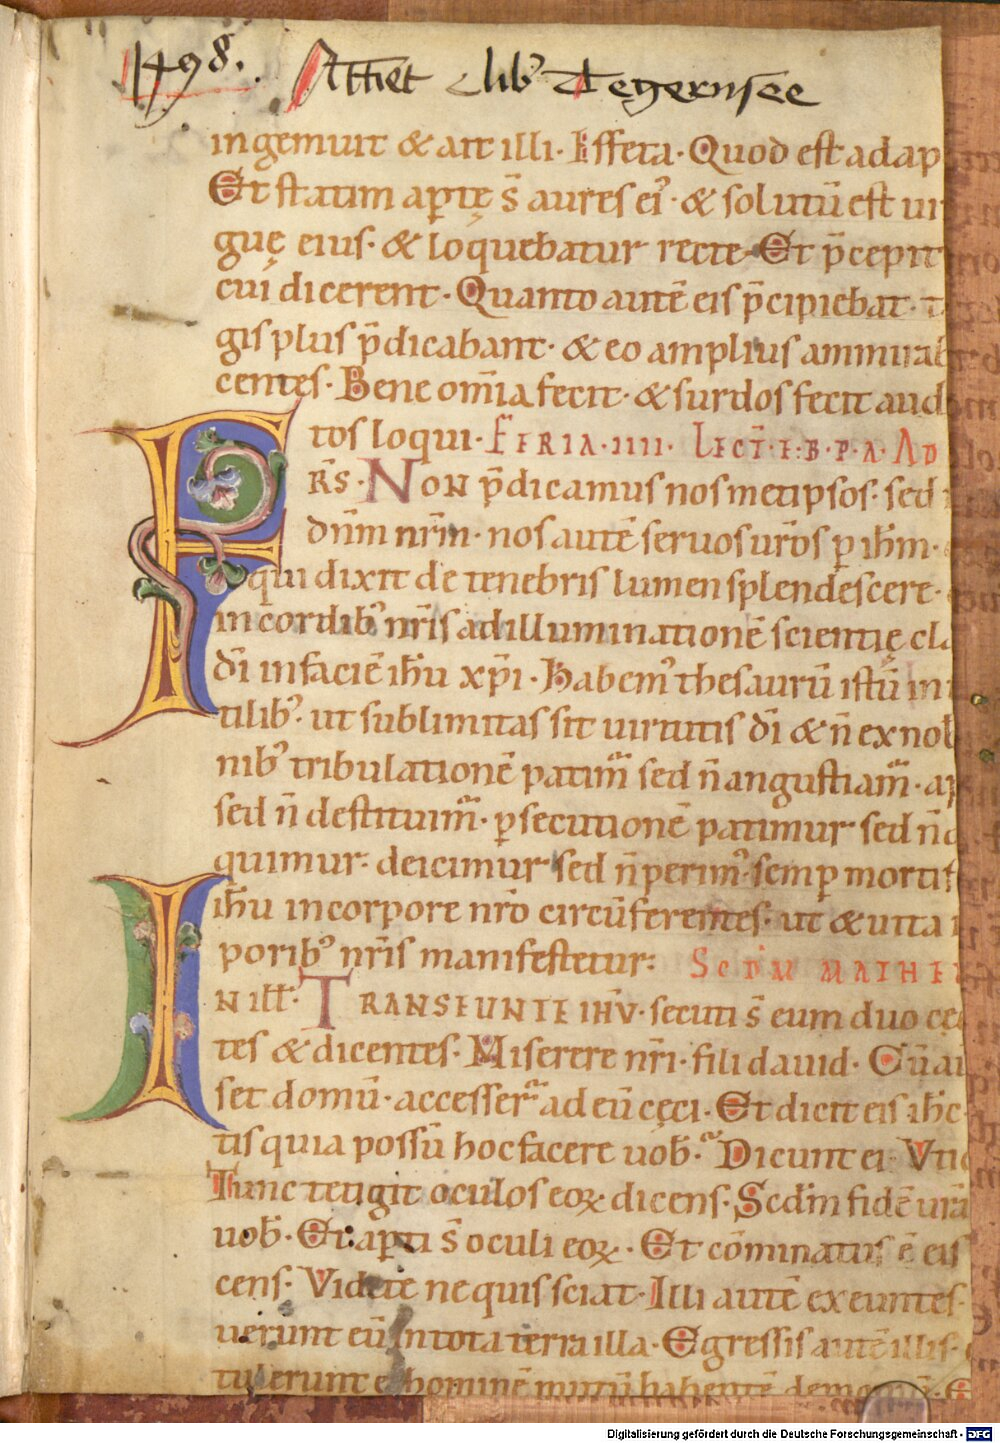 1498. Attinet lib' Tegernsee
ingemuit & ait illi· Effeta· Quod est adap
Et statim apte s̄ aures ei'· & solutū est ui
guę eius· & loquebatur recte· Et p̄cepit
cui dicerent· Quanto autē eis p̄cipiebat·
gis plus p̄dicabant· & eo amplius ammirab
centes· Bene om̄ia fecit· & surdos fecit aud
tos loqui· FERIA·IIII· LECT̄·E·B·P·A· AD
RS̄· NON p̄dicamus nosmetipsos· sed
dn̄m nr̄m· nos autē seruos ur̄os p ih̄m·
qui dixit de tenebris lumen splendescere·
in cordib' nr̄is ad illuminationē scientię cla
dī in faciē ih̄u xp̄i· Habem' thesaurū istū in
tilib'· ut sublimitas sit uirtutis dī & n̄ ex nob
nib' tribulationē patim̃ sed n̄ angustiam̃· ap
sed n̄ destituim̃· psecutionē patimur sed n̄ d
quimur· deicimur sed n̄ perim'· semp mortif
ih̄u in corpore nr̄o circūferentes· ut & uita
porib' nr̄is manifestetur: SCDM MATHE
IN ILL̄· TRANSEUNTE IHV̄· secuti s̄ eum duo cęc
tes & dicentes· Miserere nr̄i· fili dauid· Cū aū
set domū· accesser̃ ad eū cęci· Et dicit eis ih̄c·
tis quia possū hoc facere uob̄· Dicunt ei· Vtiq
Tunc tetigit oculos eoꝝ dicens· Scdm̄ fidē ur̄a
uob̄· Et apti s̄ oculi eoꝝ· Et cōminatus ē eis
cens· Videte ne quis sciat· Illi autē exeuntes·
uerunt eū in tota terra illa· Egressis autē illis·
tulerunt ei hominē mutū habentē demoniū· E
Digitalisierung gefördert durch die Deutsche Forschungsgemeinschaft - DFG